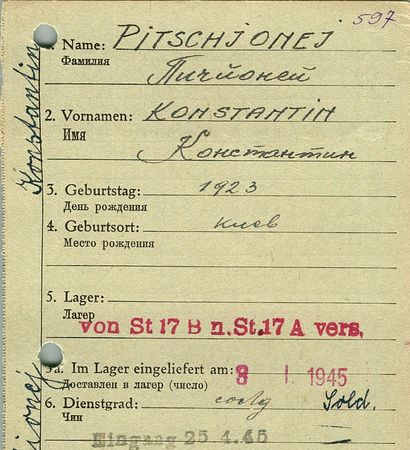 597
1. Name: PITSCHJONEJ
Фамилия
Пичйоней
2. Vornamen: KONSTANTIN
Имя
Константин
3. Geburtstag: 1923
День рождения
4. Geburtsort: Киев
Место рождения
5. Lager:
Лагер
von St 17 B n. St. 17 A vers.
5a. Im Lager eingeliefert am: 8 I. 1945
Доставлен в лагер (число)
6. Dienstgrad: Sold.
Чин
Eingang 25 4.45
Konstantin